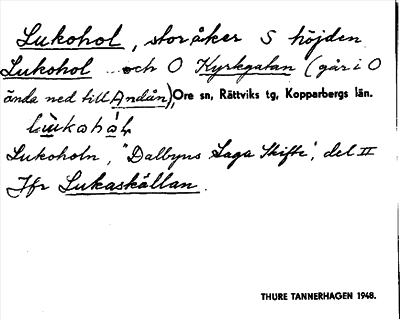 Lukohol, storåker S höjden
Lukohol och O Kyrkgatan (går i O
ända ned till Andån), Ore sn, Rättviks tg, Kopparbergs län.
Lukoholn, "Dalbyns Laga Skifte", del II
Jfr Lukaskällan.
THURE TANNERHAGEN 1948.